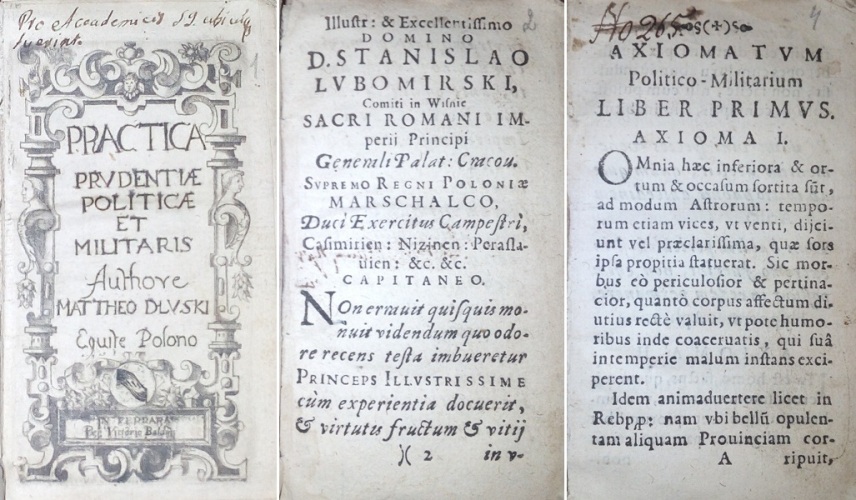 Pro Academicis
PRACTICA
PRVDENTIÆ
POLITICÆ
ET
MILITARIS
Authore
MATTHEO DLVSKI
Equite Polono
IN FERRARA
Per Vittorio Baldini
2
Illustr: & Excellentissimo
DOMINO
D. STANISLAO
LVBOMIRSKI,
Comiti in Wisnie
SACRI ROMANI IM-
perii Principi
Generali Palat: Cracou.
SVPREMO REGNI POLONIÆ
MARSCHALCO,
Duci Exercitus Campestri,
Casimirien: Niznien: Perasla-
uien: &c. &c.
CAPITANEO.
NOn errauit quisquis mo-
nuit videndum quo odo-
re recens testa imbueretur
PRINCEPS ILLVSTRISSIME
cùm experientia docuerit,
& virtutis fructum & vitij
)( 2 in v-
4
No 265.
AXIOMATVM
Politico-Militarium
LIBER PRIMVS.
AXIOMA I.
OMnia hæc inferiora & or-
tum & occasum sortita sũt,
ad modum Astrorum: tempo-
rum etiam vices, vt venti, dijci-
unt vel præclarissima, quæ sors
ipsa propitia statuerat. Sic mor-
bus eò periculosior & pertina-
cior, quantò corpus affectum di-
utius rectè valuit, vt pote humo-
ribus inde coaceruatis, qui suâ
intemperie malum instans exci-
perent.
Idem animaduertere licet in
Rebpp: nam vbi bellũ opulen-
tam aliquam Prouinciam cor-
A ripuit,